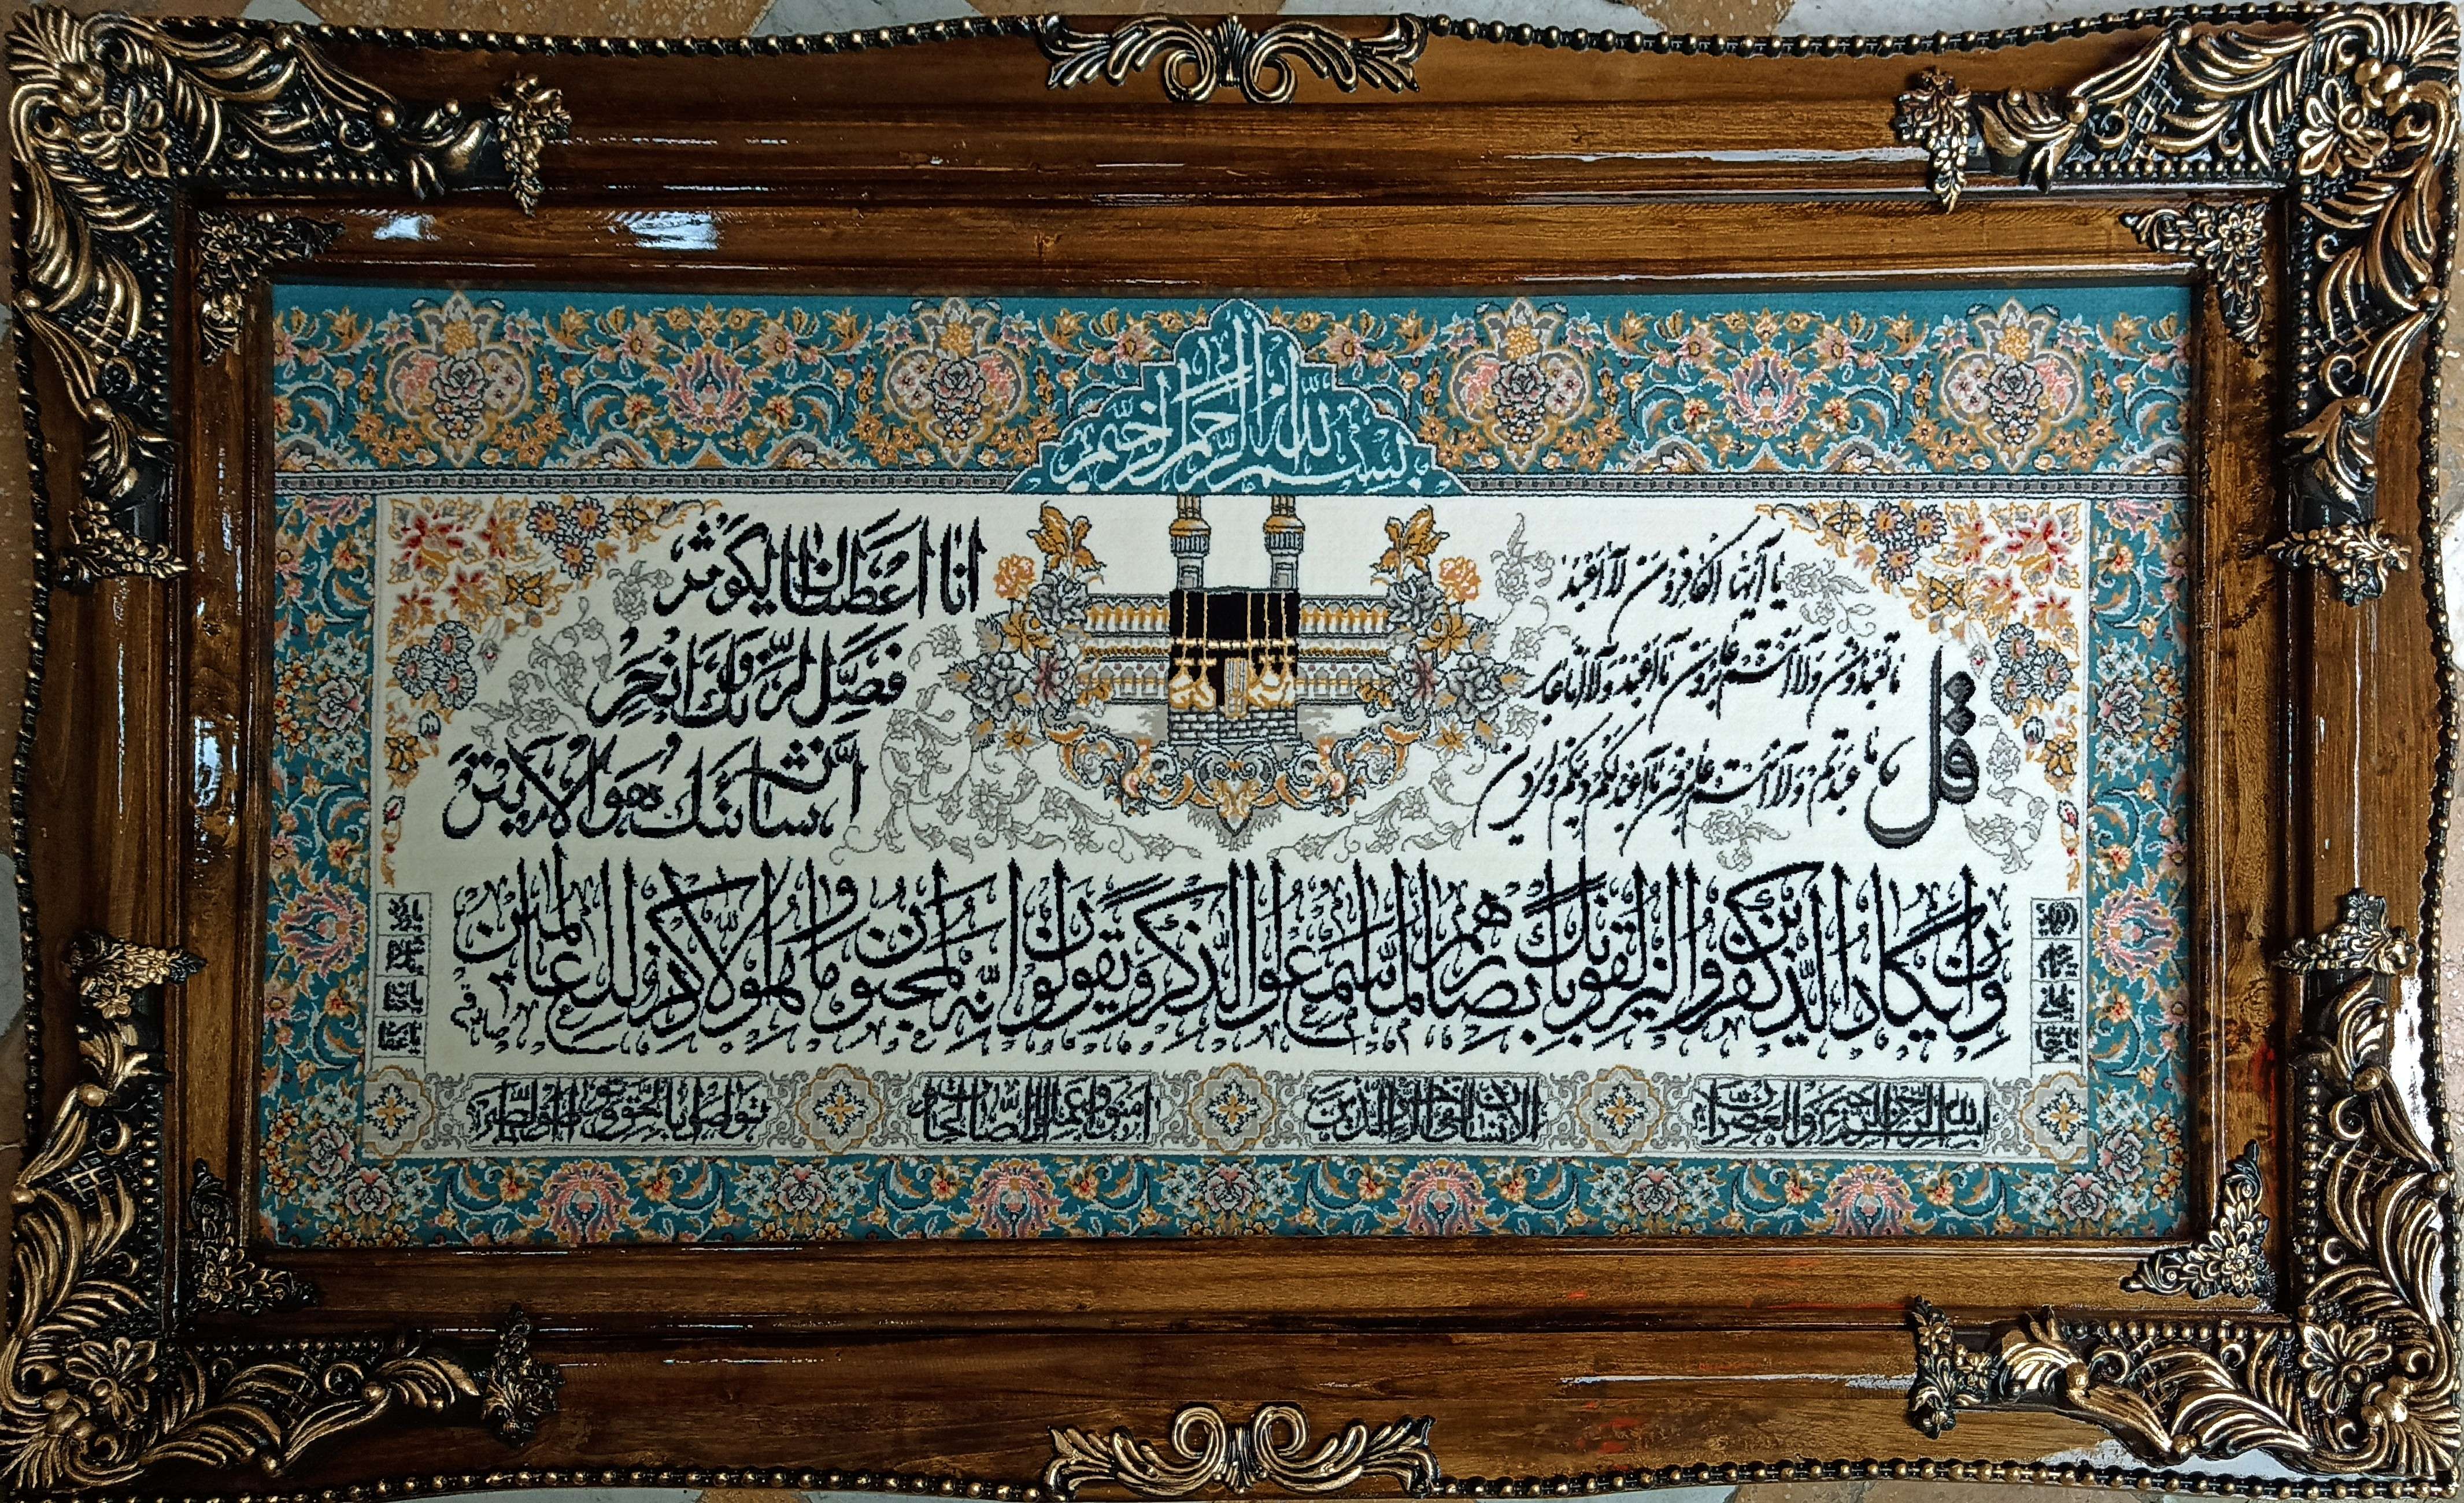 بسم الله الرحمن الرحيم
قل
يا أيها الكافرون لا أعبد
ما تعبدون ولا أنتم عابدون ما أعبد ولا أنا عابد
ما عبدتم ولا أنتم عابدون ما أعبد لكم دينكم ولي دين
انا اعطيناك الكوثر
فصل لربك وانحر
ان شانئك هو الابتر
وان يكاد الذين كفروا ليزلقونك بابصارهم لما سمعوا الذكر ويقولون انه لمجنون وما هو الا ذكر للعالمين
الله الرحمن الرحيم والعصر ان
الانسان لفي خسر الا الذين
امنوا وعملوا الصالحات
تواصوا بالحق وتواصوا بالصبر